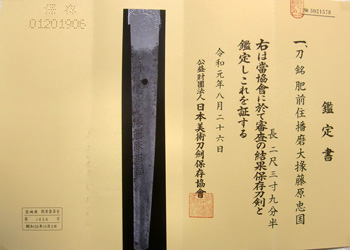 鑑定書
一、刀 銘 肥前住播磨大掾藤原忠国
長 二尺三寸九分半
右は當協會に於て審査の結果保存刀剣と
鑑定しこれを証する
令和元年八月二十六日
公益財團法人 日本美術刀剣保存協會
保存
01201906
№ 3021578